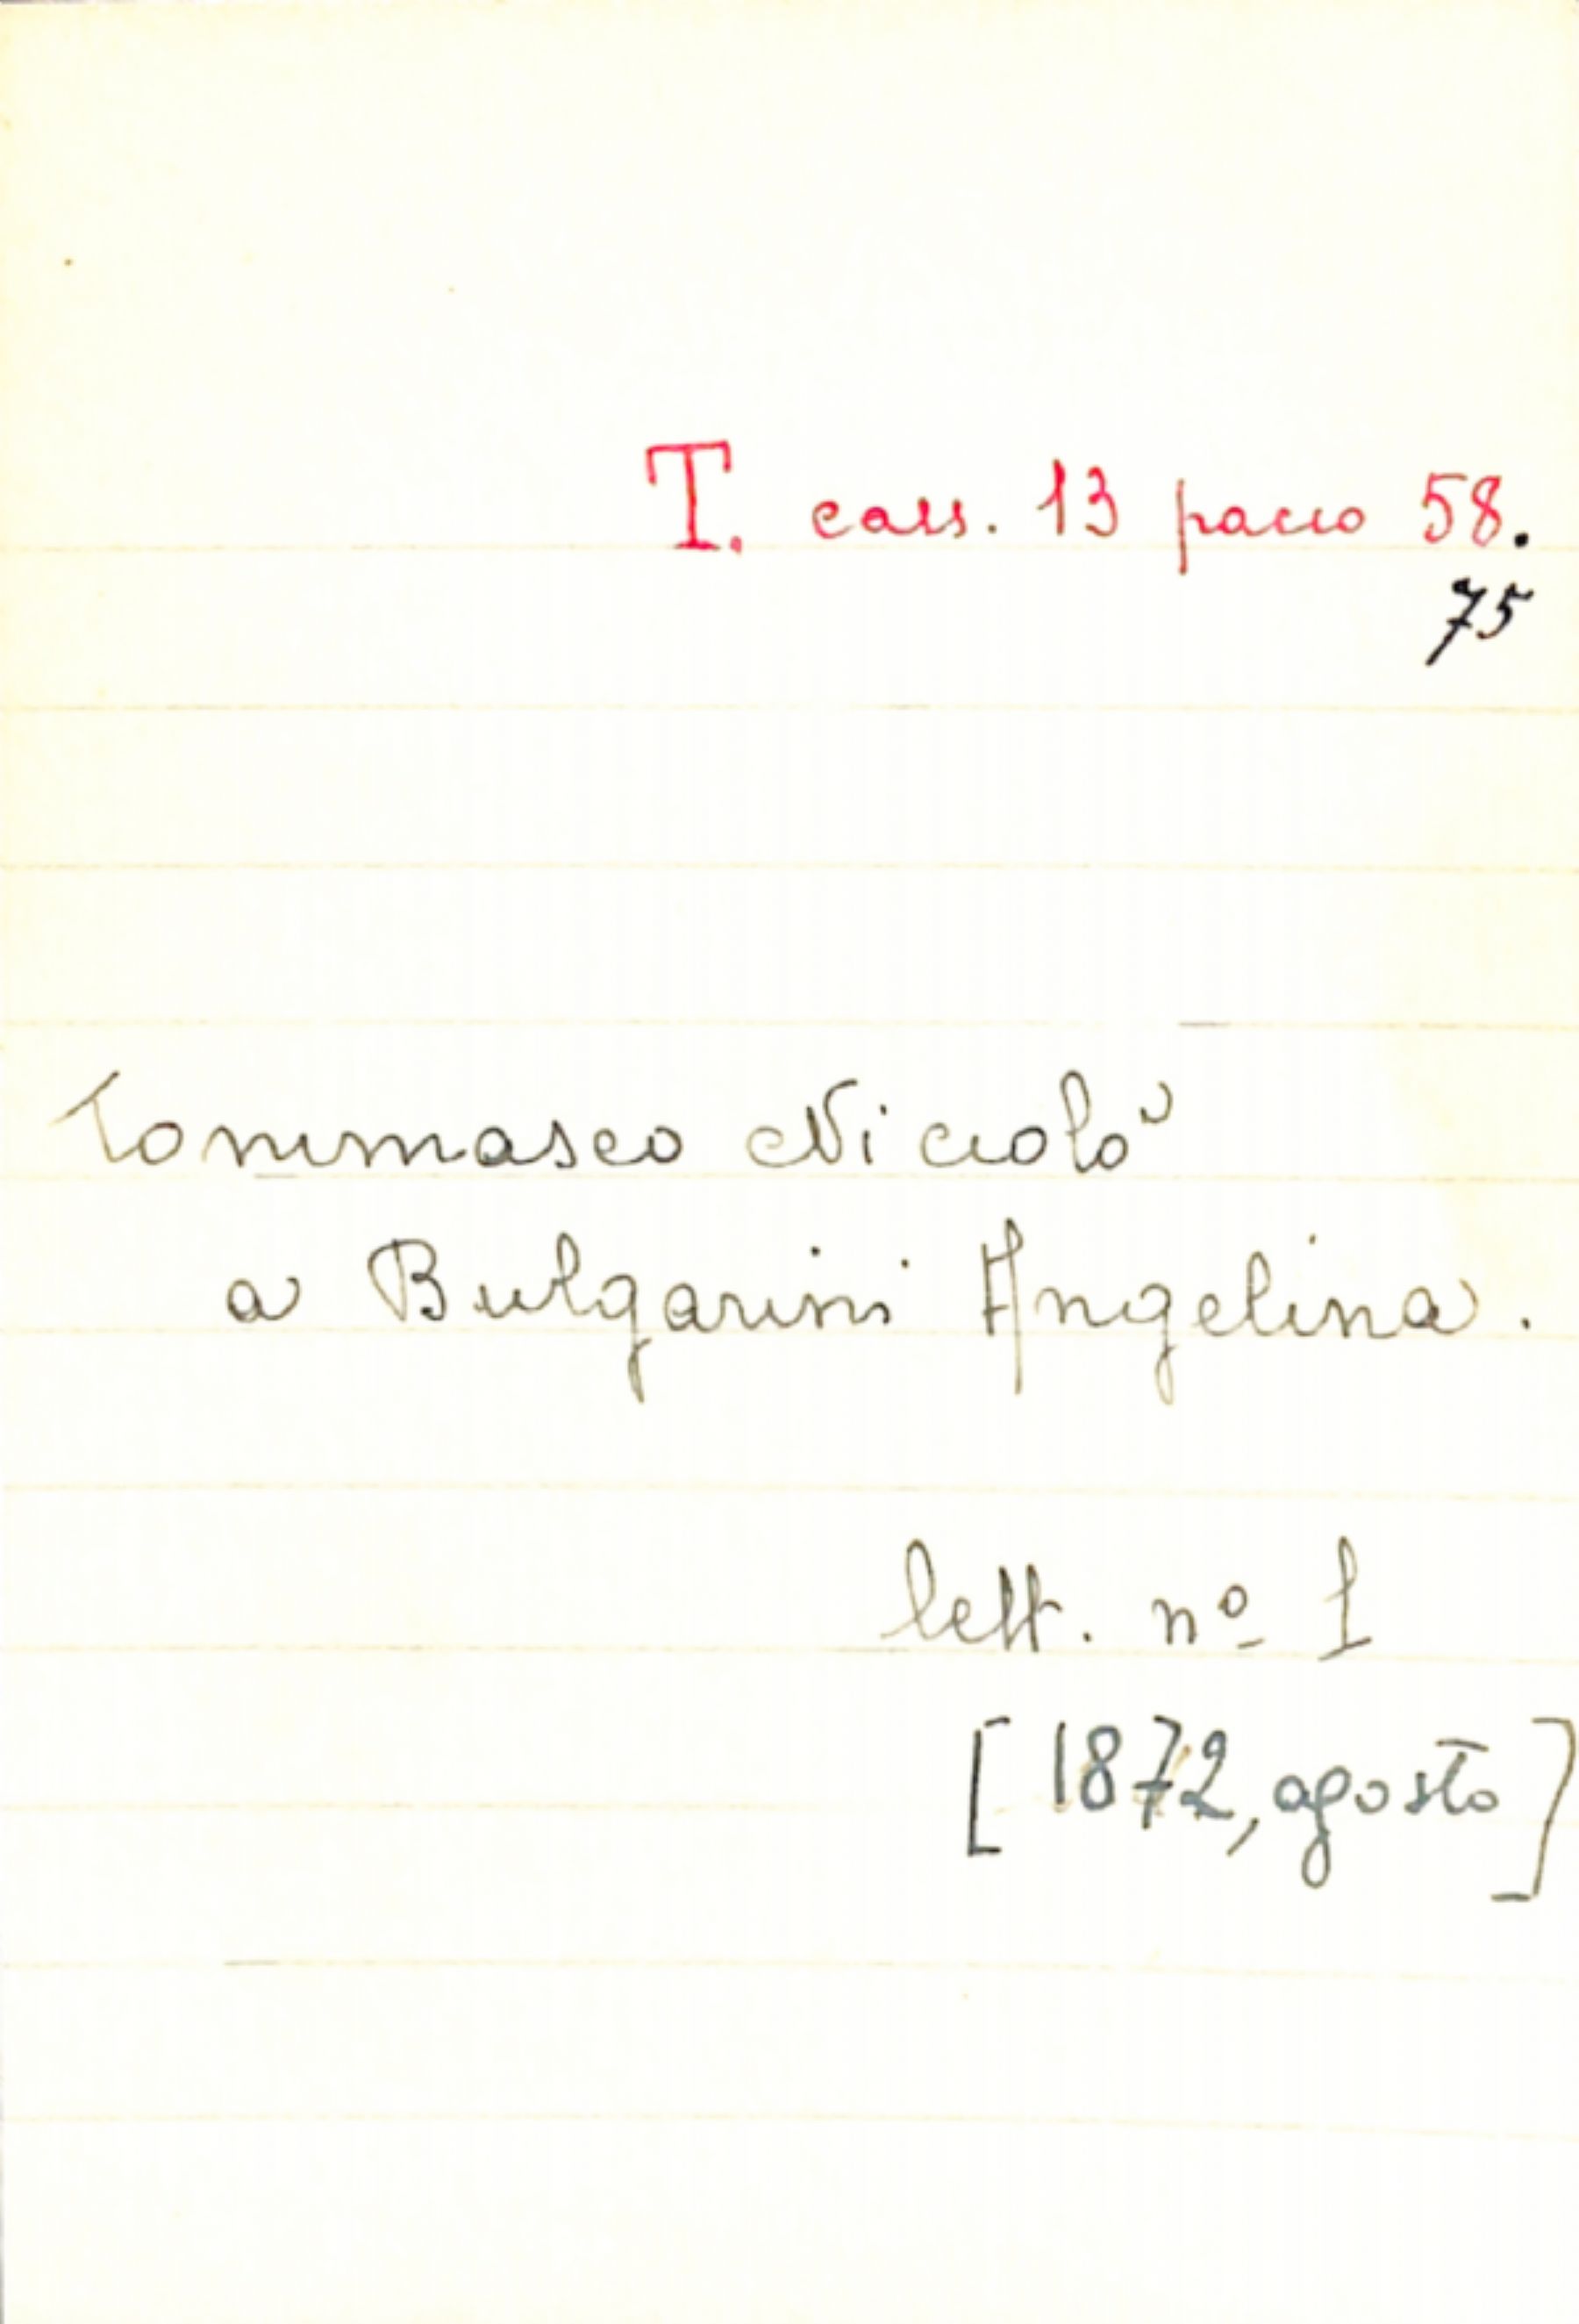 T. cass. 13 pacco 58.
75
Tommaseo Niccolò
a Bulgarini Angelina.
lett. nº 1
[1872, agosto]